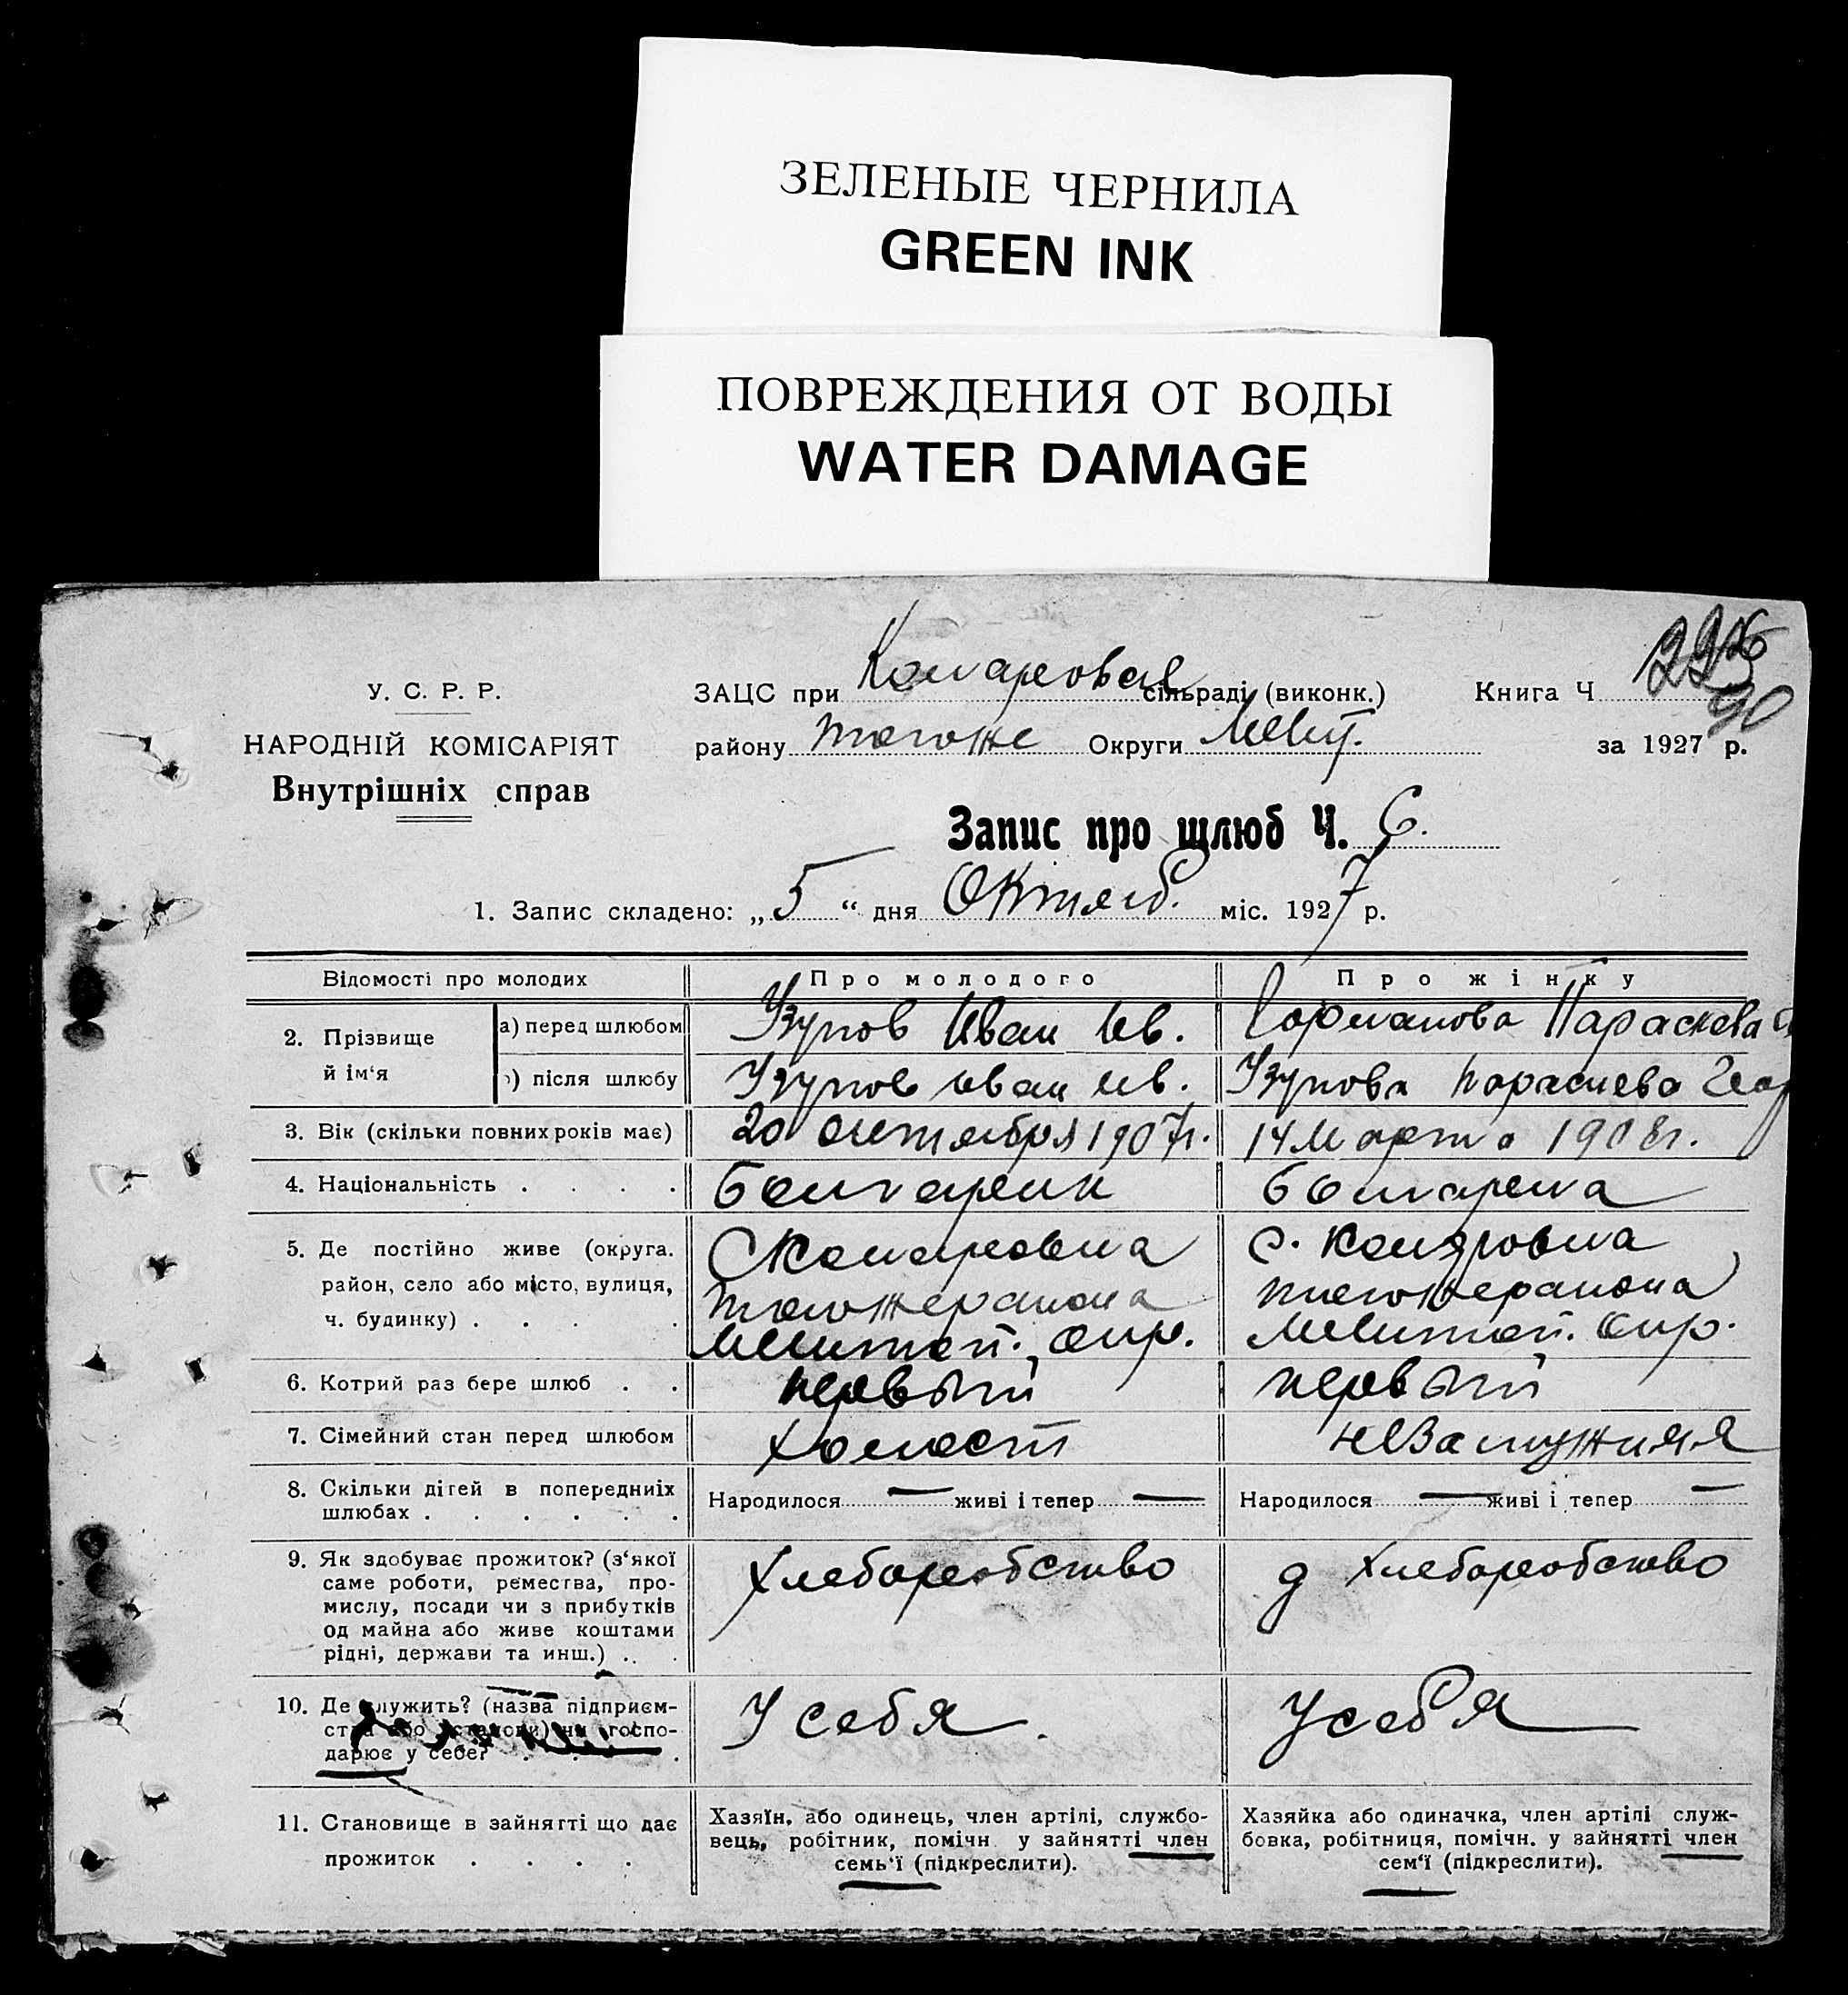 ЗЕЛЕНЫЕ ЧЕРНИЛА
GREEN INK
ПОВРЕЖДЕНИЯ ОТ ВОДЫ
WATER DAMAGE
У. С. Р. Р.
НАРОДНІЙ КОМІСАРІЯТ
Внутрішніх справ
ЗАЦС при сільраді (виконк.) Книга Ч
району тогоже Округи Мелит. за 1927 р.
Запис про щлюб Ч. 6.
1. Запис складено: „5“ дня Октяб. міс. 1927 р.
Відомості про молодих Про молодого Про жінку
2. Прізвище й ім‘я
а) перед шлюбом Узунов Иван Ив. Параскева
) після шлюбу Узунов Иван Ив. Узунова Параскева Геор
3. Вік (скільки повних років має) 20 октября 1907г. 14 Марта 1908г.
4. Національність . . . . Болгарин Болгарка
5. Де постійно живе (округа, район, село або місто, вулиця, ч. будинку) . . . .
С Комаровка тогоже района Мелитоп. окр.
с. Комаровка тогоже района Мелитоп. окр.
6. Котрий раз бере шлюб . . первый первый
7. Сімейний стан перед шлюбом холост незамужняя
8. Скільки дітей в попередниіх шлюбах . . . . . .
Народилося — живі і тепер —
Народилося — живі і тепер —
9. Як здобуває прожиток? (з‘якої саме роботи, ремества, промислу, посади чи з прибутків од майна або живе коштами рідні, держави та инш.) . . .
Хлеборобство
д Хлеборобство
10. Де служить? (назва підприємства або установи) чи господарює у себе? . . . .
У себя
У себя
11. Становище в зайнятті що дає прожиток . . . .
Хазяїн, або одинець, член артілі, службовець, робітник, помічн у зайнятті член семь‘ї (підкреслити).
Хазяйка або одиначка, член артілі службовка, робітниця, помічн. у зайнятті член сем‘ї (підкреслити).